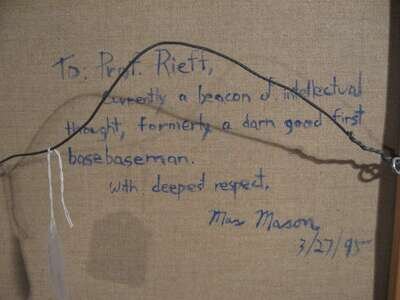 To: Prof. Riett,
Currently a beacon of intellectual
thought, formierty a darn good first
basebaseman.
With deepest respect,
Max Mason
3/27/95